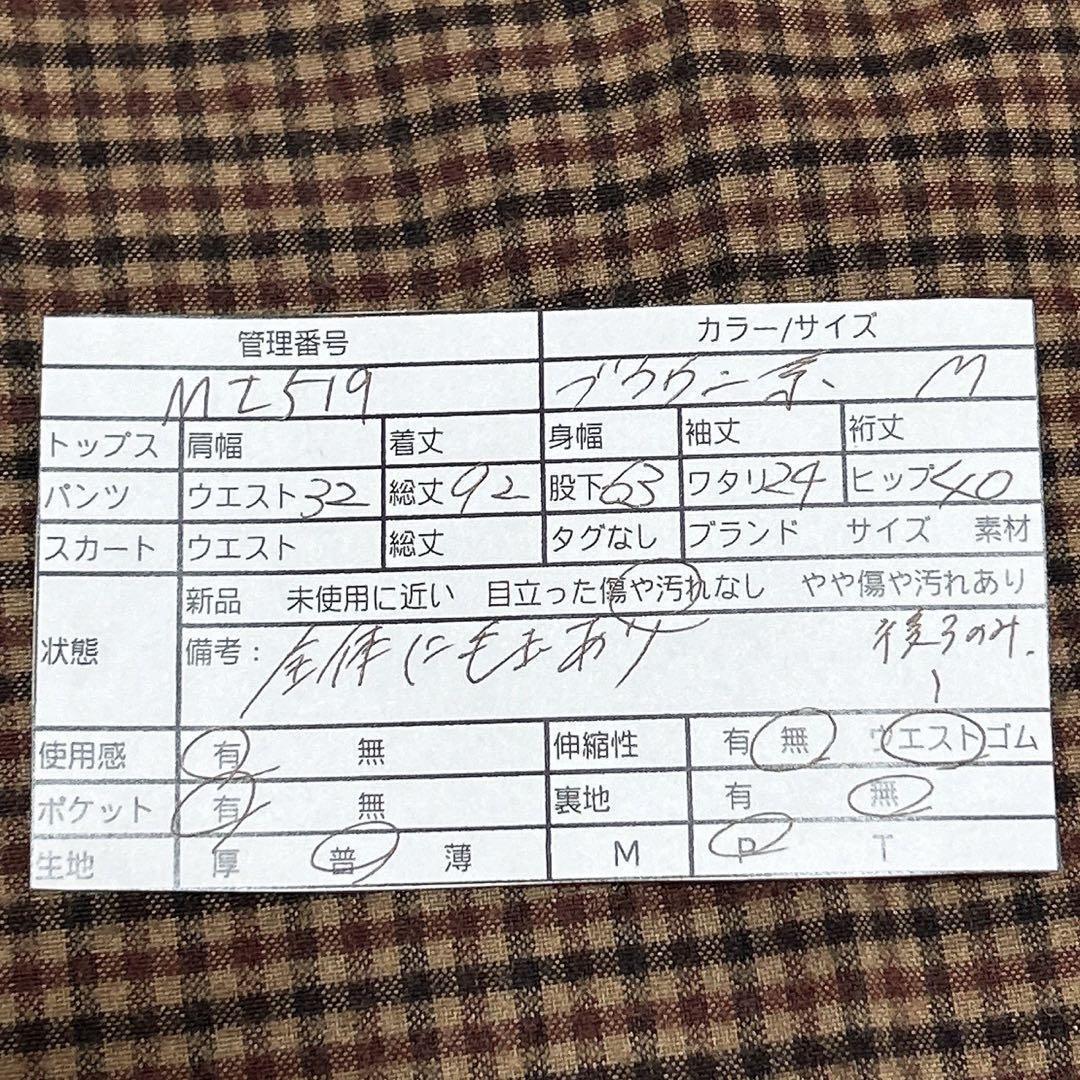 管理番号 カラー/サイズ
MZ519 ブラウン系、 M
トップス 肩幅 着丈 身幅 袖丈 裄丈
パンツ ウエスト32 総丈92 股下63 ワタリ24 ヒップ40
スカート ウエスト 総丈 タグなし ブランド サイズ 素材
状態 新品 未使用に近い 目立った傷や汚れなし やや傷や汚れあり
備考: 全体に毛玉あり 後ろのみ
使用感 有 無 伸縮性 有 無 ウエストゴム
ポケット 有 無 裏地 有 無
生地 厚 普 薄 M P T